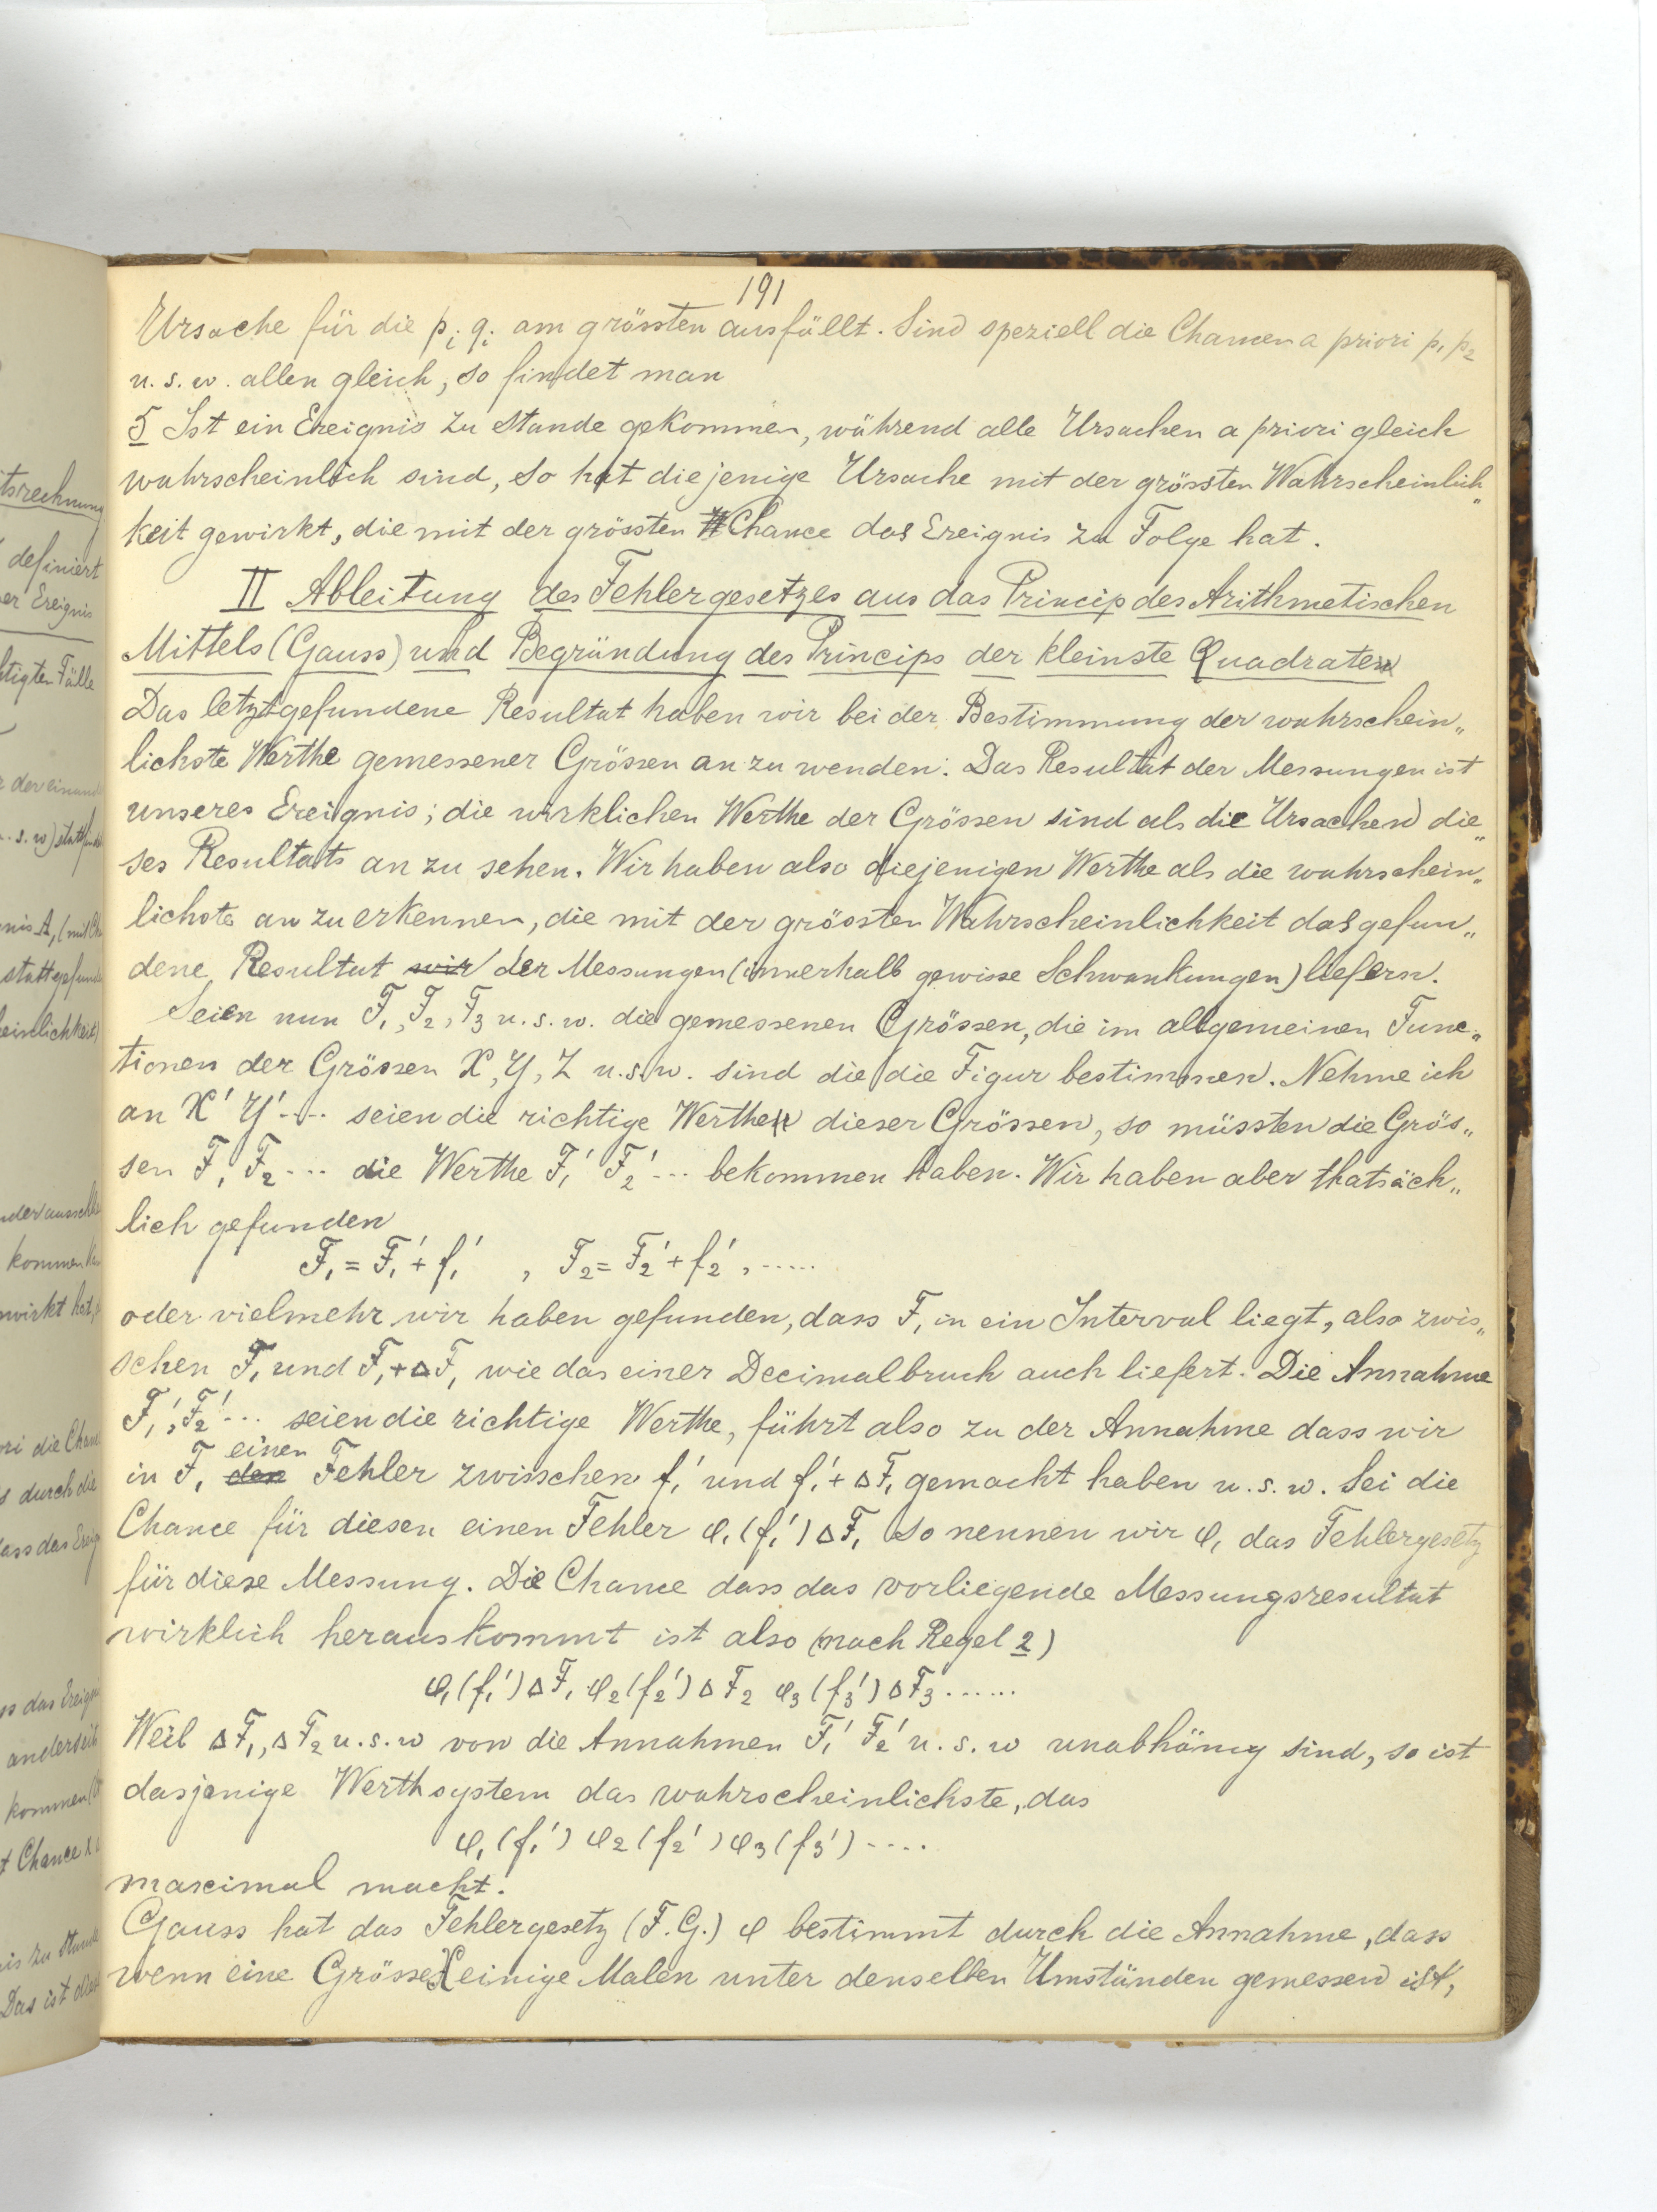 191
Ursache für die p_i q_i am grössten ausfällt. Sind speziell die Chancen a priori p_1 p_2
u. s. w. allen gleich, so findet man
5 Ist ein Ereignis zu Stande gekommen, während alle Ursachen a priori gleich
wahrscheinlich sind, so hat diejenige Ursache mit der grössten Wahrscheinlich„
keit gewirkt, die mit der grössten Chance das Ereignis zu Folge hat.
II Ableitung des Fehlergesetzes aus das Princip des Arithmetischen
Mittels (Gauss) und Begründung des Princips der kleinste Quadraten
Das letztgefundene Resultat haben wir bei der Bestimmung der wahrschein„
lichste Werthe gemessener Grössen an zu wenden. Das Resultat der Messungen ist
unseres Ereignis; die wirklichen Werthe der Grössen sind als die Ursachen die„
ses Resultats an zu sehen. Wir haben also diejenigen Werthe als die wahrschein„
lichste an zu erkennen, die mit der grössten Wahrscheinlichkeit das gefun„
dene Resultat wir der Messungen (innerhalb gewisse Schwankungen) liefern.
Seien nun F_1, F_2, F_3 u. s. w. die gemessenen Grössen, die im allgemeinen Func„
tionen der Grössen X, Y, Z u. s. w. sind die die Figur bestimmen. Nehme ich
an X' Y' ---- seien die richtige Werthe dieser Grössen, so müssten die Grös„
sen F_1 F_2 --- die Werthe F_1' F_2' --- bekommen haben. Wir haben aber thatsäch„
lich gefunden
F_1 = F_1' + f_1' , F_2 = F_2' + f_2', -----
oder vielmehr wir haben gefunden, dass F_1 in ein Interval liegt, also zwis„
schen F_1 und F_1 + ΔF_1 wie das einer Decimalbruch auch liefert. Die Annahme
F_1', F_2' --- seien die richtige Werthe, führt also zu der Annahme dass wir
einen
in F_1 den Fehler zwisschen f_1' und f_1' + ΔF_1 gemacht haben u. s. w. Sei die
Chance für diesen einen Fehler φ_1(f_1') ΔF_1 so nennen wir φ_1 das Fehlergesetz
für diese Messung. Die Chance dass das vorliegende Messungsresultat
wirklich herauskommt ist also (nach Regel 2)
φ_1(f_1') ΔF_1 φ_2(f_2') ΔF_2 φ_3(f_3') ΔF_3 ------
Weil ΔF_1, ΔF_2 u. s. w von die Annahmen F_1' F_2' u. s. w unabhänig sind, so ist
dasjenige Werthsystem das wahrscheinlichste, das
φ_1(f_1') φ_2(f_2') φ_3(f_3') ----
maximal macht.
Gauss hat das Fehlergesetz (F. G.) φ bestimmt durch die Annahme, dass
wenn eine Grösse X einige Malen unter denselben Umständen gemessen ist,